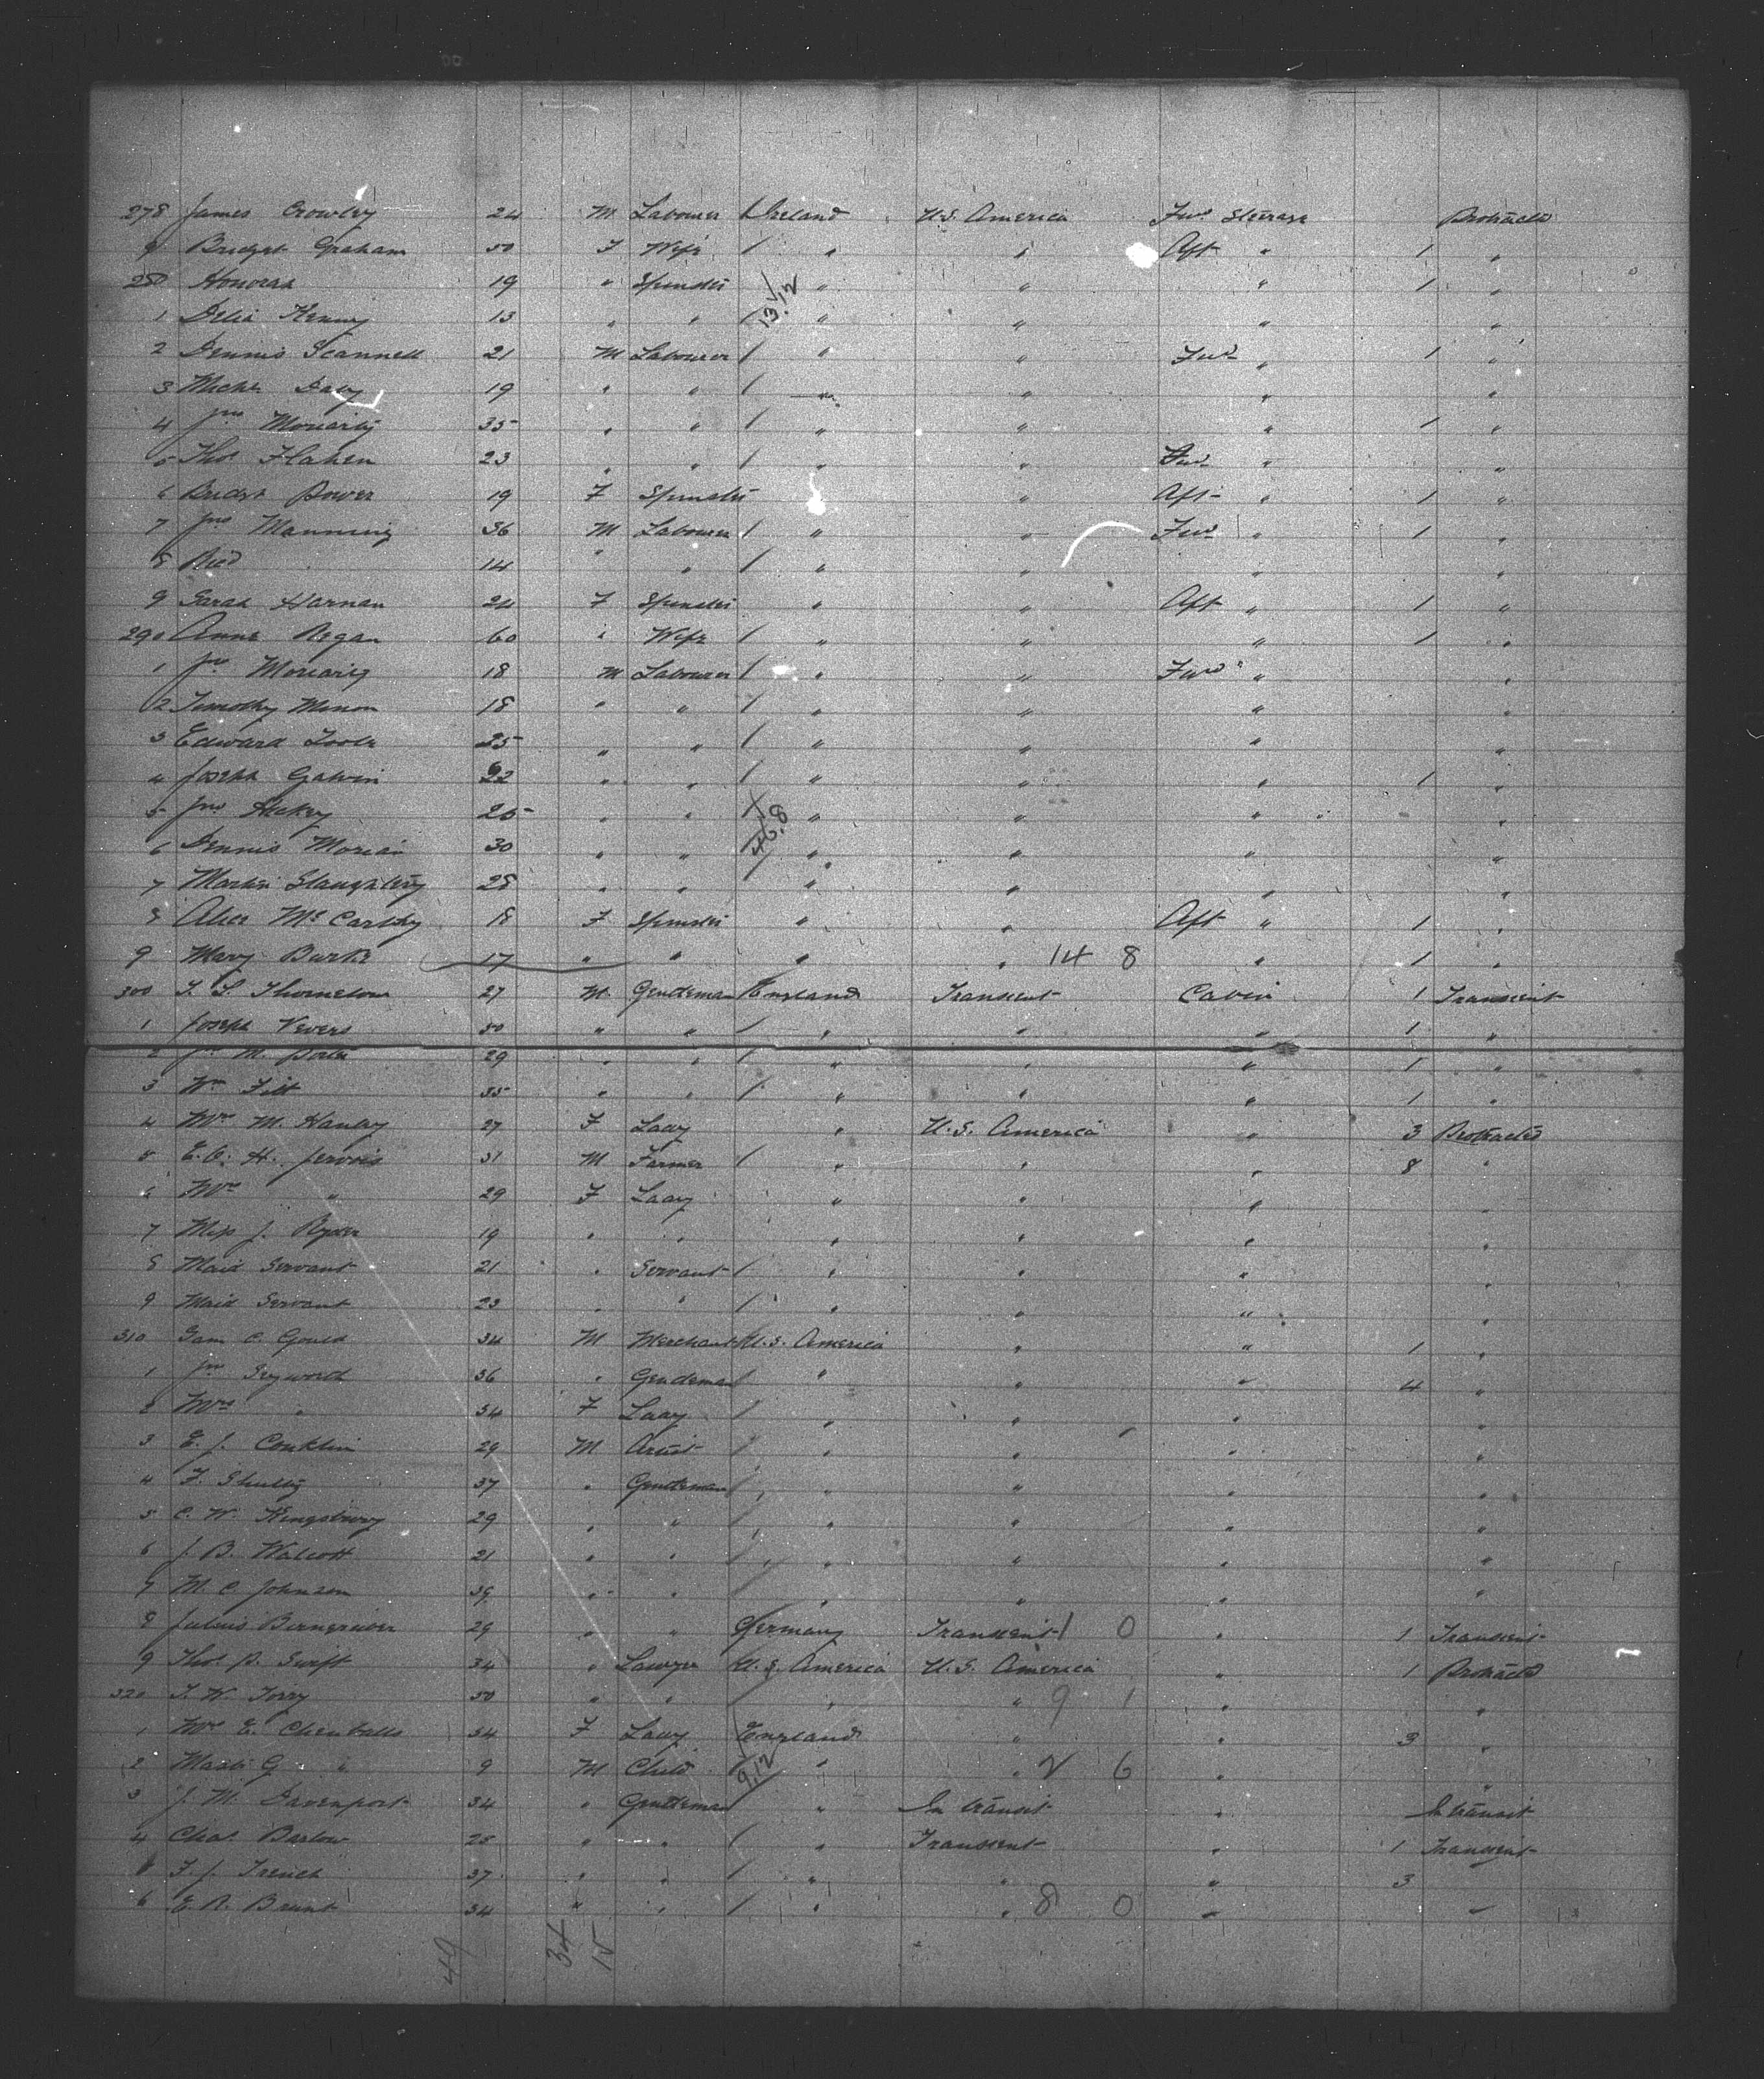 278 James Crowley 24 M Labourer Ireland U.S. America Fwd Steerage Protracted
9 Bridget Graham 50 F Wife / " " Aft " 1 "
280 Honorah 19 " Spinster " " " 1 "
1 Delia Kenny 13 " " / " " " "
2 Dennis Scannell 21 M Labourer / " " Fwd " 1 "
3 Michl Daly 19 " " / " " " "
4 Jno Moriarty 35 " " / " " " 1 "
5 Thos Flahen 23 " " / " " Fwd " "
6 Bridgt Power 19 F Spinster " " Aft " 1 "
7 Jno Manning 36 M Labourer / " " Fwd " 1 "
8 Richd 14 " " / " " " "
9 Sarah Harnan 24 F Spinster " " Aft " 1 "
290 Anne Regan 60 " Wife / " " " 1 "
1 Jno Moriarty 18 M Labourer / " " Fwd " "
2 Timothy Minon 18 " " / " " " "
3 Edward Toole 25 " " / " " " "
4 Joseph Galvin 22 " " / " " " 1 "
5 Jno Hickey 25 " " " " " "
6 Dennis Moriarty 30 " " " " " "
7 Martin Slaughtery 28 " " " " " "
8 Alice McCarthy 18 F Spinster " " Aft " 1 "
9 Mary Burke 17 " " " " 14 8 " 1 "
300 T. S. Thornelow 27 M Gentleman England Transient Cabin 1 Transient
1 Joseph Nevers 50 " " / " " " 1 "
2 Jno M. Porter 29 " " / " " " 1 "
3 Wm Filt 35 " " / " " " 1 "
4 Mrs M. Hanley 27 F Lady " U.S. America " 3 Protracted
5 E. C. H. Jervois 31 M Farmer / " " " 8 "
6 Mrs " 29 F Lady " " " "
7 Miss J. Ryder 19 " " " " " "
8 Maid Servant 21 " Servant / " " " "
9 Maid Servant 23 " " / " " " "
310 Sam C. Gould 34 M Merchant U.S. America " " 1 "
1 Jno Seyword 36 " Gentleman / " " " 4 "
2 Mrs " 34 F Lady / " " " "
3 E. J. Conklin 29 M Artist / " " " "
4 F. Shultz 37 " Gentleman / " " " "
5 C. W. Kingsbury 29 " " / " " " "
6 J. B. Walcott 21 " " / " " " "
7 M. C. Johnson 39 " " / " " " "
8 Julius 29 " " Germany Transient 1 0 " 1 Transient
9 Thos P. Swift 34 " Lawyer U.S. America U.S. America " 1 Protracted
320 T. W. Torry 50 " " / " " 9 1 " "
1 Mrs E. 34 F Lady England " " 3 "
2 Mastr G. " 9 M Child 9/12 " " 2 6 " "
3 J. M. Davenport 34 " Gentleman " In transit " In transit
4 Chas Barlow 25 " " / " Transient " 1 Transient
5 F. J. French 37 " " / " " " 3
6 E. R. Brunt 34 " " / " " 8 0 " "
49 34 15